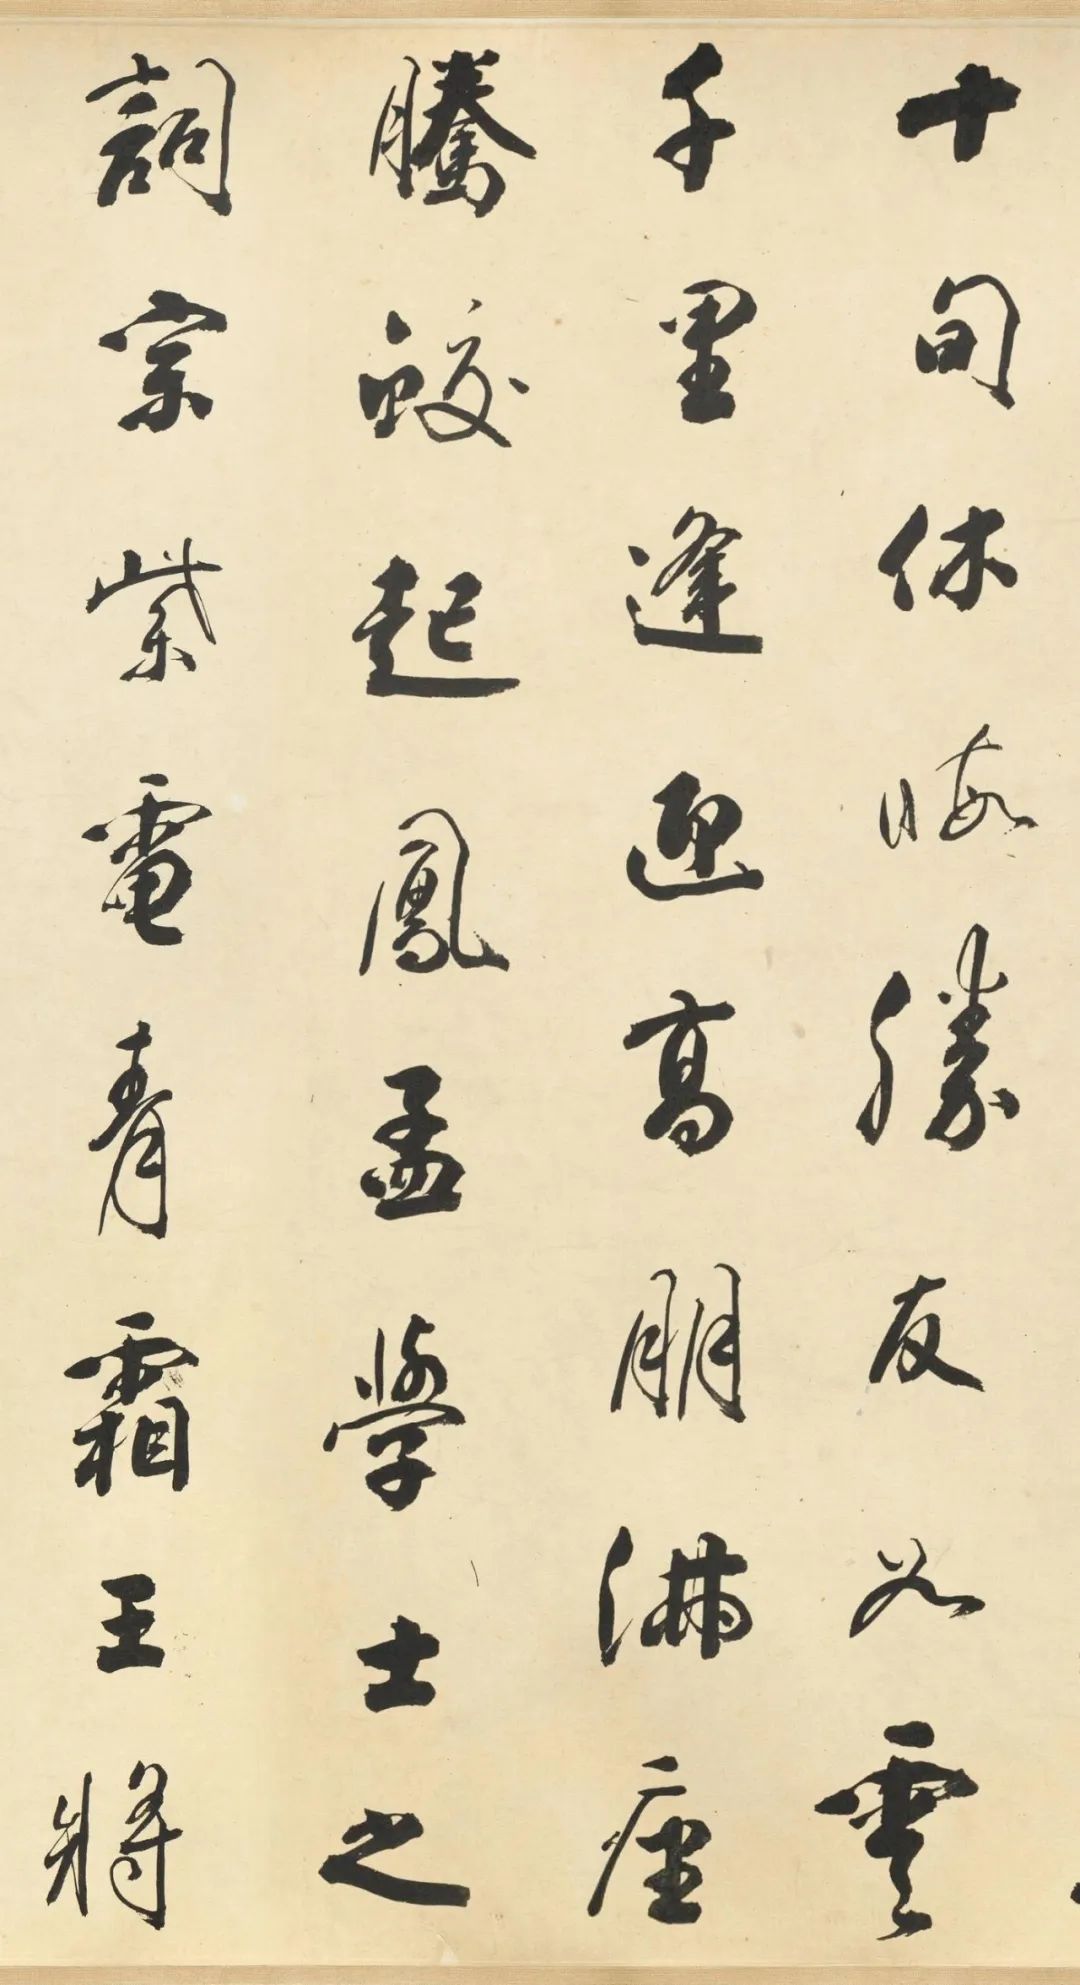 十旬休暇勝友如雲
千里逢迎高朋滿座
騰蛟起鳳孟學士之
詞宗紫電青霜王將